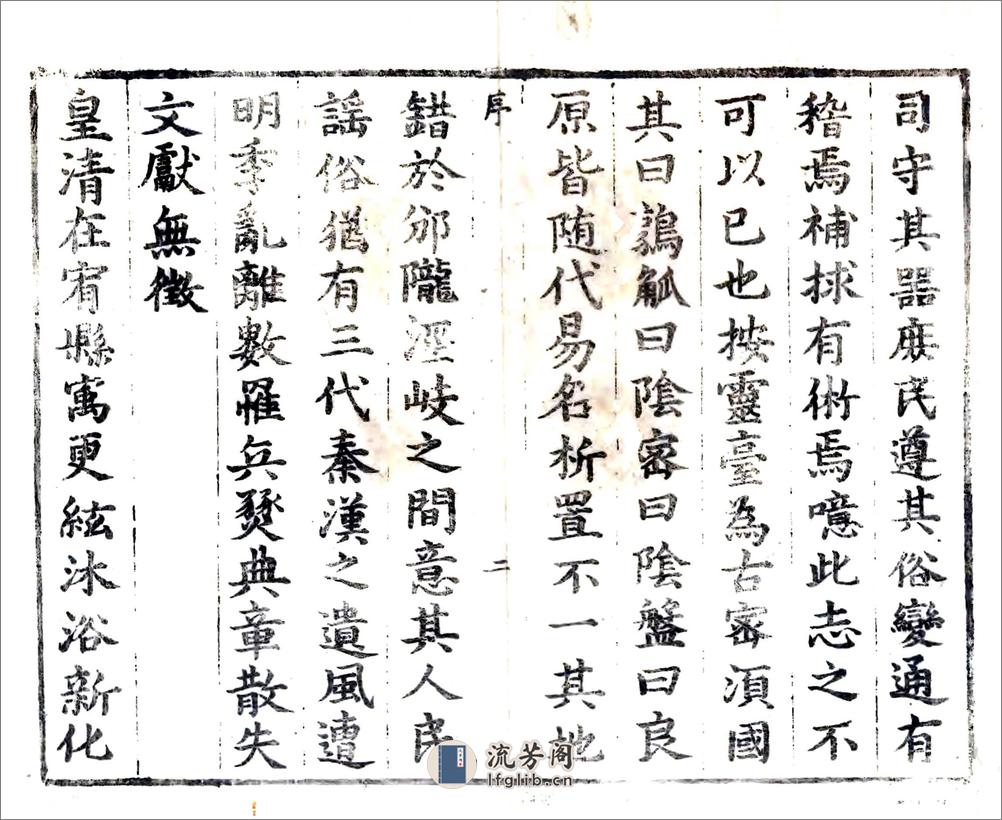 司守其器庶民遵其俗變通有
稽焉補捄有術焉噫此志之不
可以已也按靈臺為古密須國
其曰鶉觚曰陰密曰陰盤曰良
原皆随代易名析置不一其地
序
二
錯於邠隴涇岐之間意其人民
謡俗猶有三代秦漢之遺風遭
明季亂離數罹兵燹典章散失
文獻無徵
皇清在宥縣寓更絃沐浴新化
流芳阁
lfglib.cn